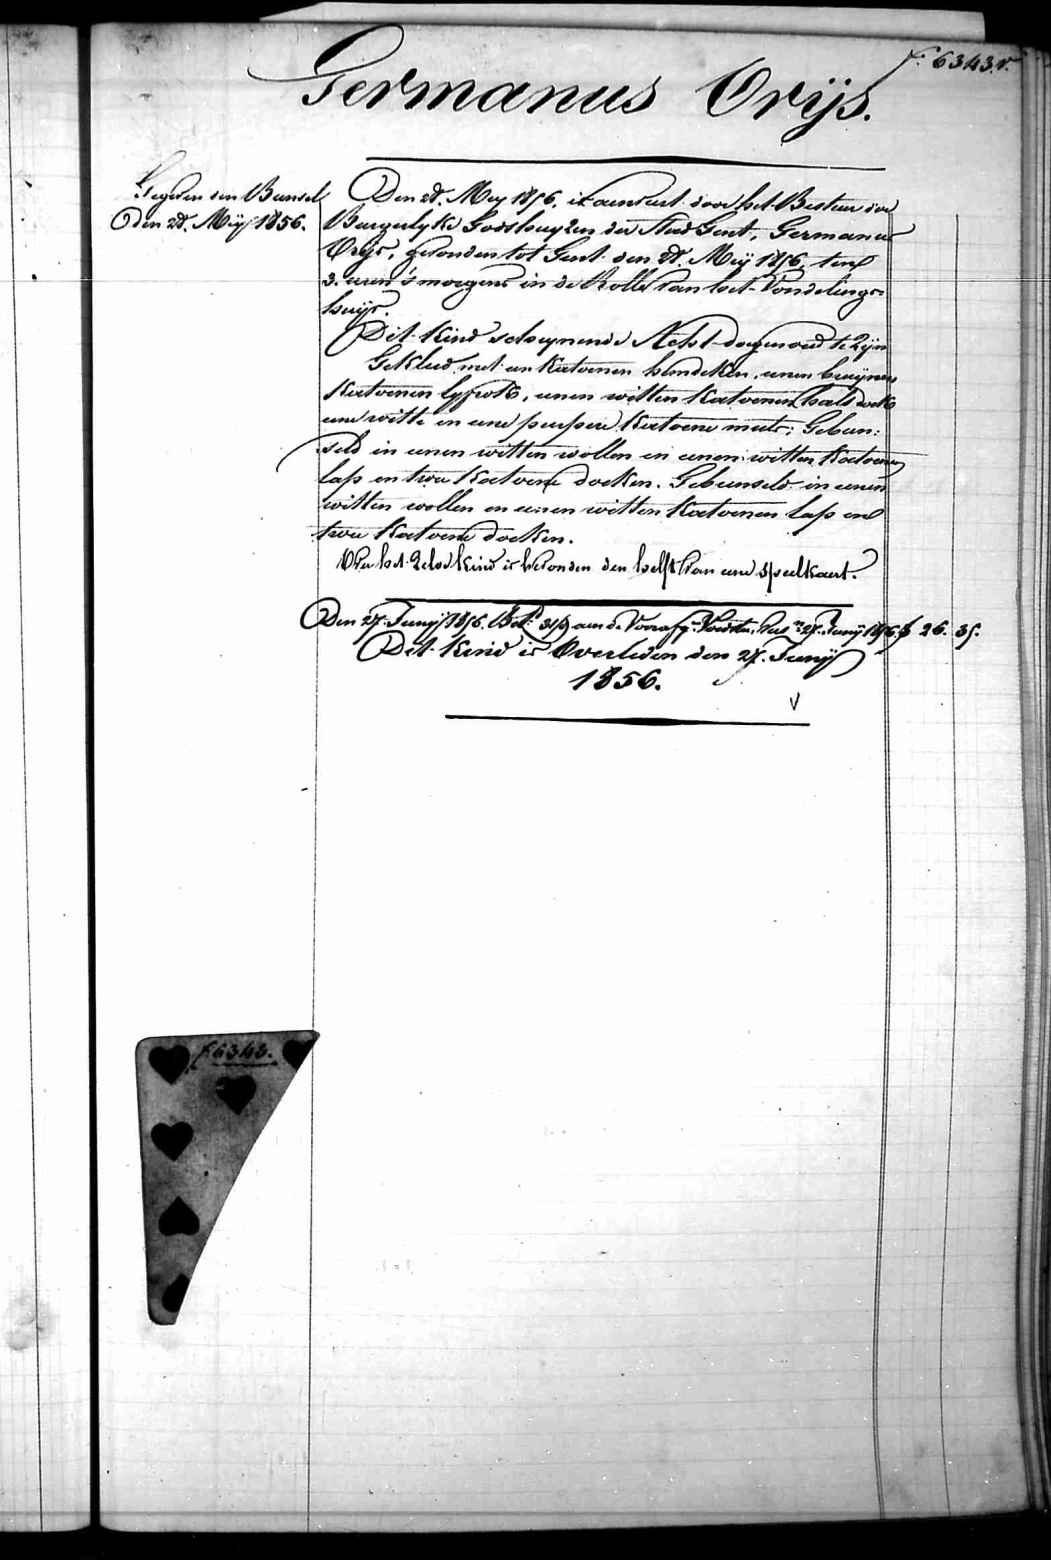 f. 6343.v.
Germanus Orijs.
Gegeven een Bunsel
Den 28. Meij 1856.
Den 28. Mey 1856. is aenveert door het Bestuer der
Burgerlyke Godshuyzen der Stad Gent, Germanus
Orijs, gevonden tot Gent den 28. Meij 1856, ten
3. uren 's morgens in de Rolle van het Vondelings-
huijs.
Dit Kind schynende Acht dagen oud te zijn
Gekleed met een Katoenen hemdeken, eenen bruynen
Katoenen lyfrok, eenen witten Katoenen halsdoek
eene witte en eene purpere Katoene muts; Gebun:
seld in eenen witten wollen en eenen witten Katoenen
lap en twee Katoene doeken. Gebunseld in eenen
witten wollen en eenen witten Katoenen lap en
twee Katoene doeken.
Op het zelve kind is bevonden den helft van eene speelkaert.
Den 27. Junij 1856. aen de tus 27. Junij 1856. 26. 35.
Dit Kind is Overleden den 27. Junij
1856.
V
f. 6343.